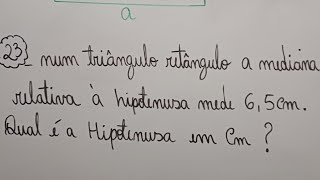 a
23 num triângulo retângulo a mediana
relativa à hipotenusa mede 6,5cm.
Qual é a Hipotenusa em Cm ?